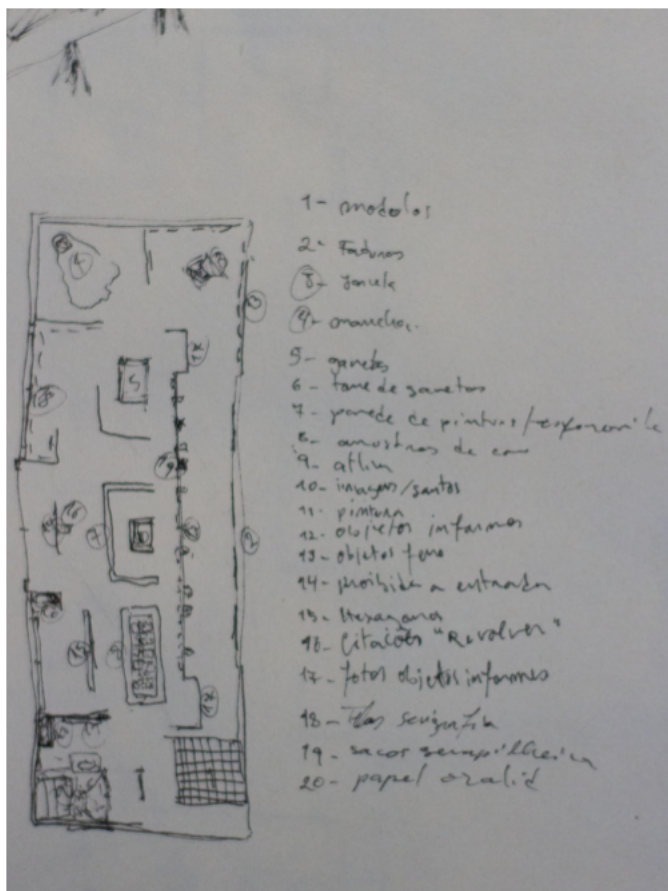 1- modelos
2-
3- Janela
4- manchas.
5- gavetas
6- torre de gavetas
7- parede de pinturas/
8- amostras de
9-
10- imagens/santos
11- pintura
12- objetos informes
13- objetos
14- proibida a entrada
15- Hexagrama
16- Citações "Revolver"
17- fotos objetos informes
18- Telas serigrafia
19- sacos serapilheira
20- papel ozalid